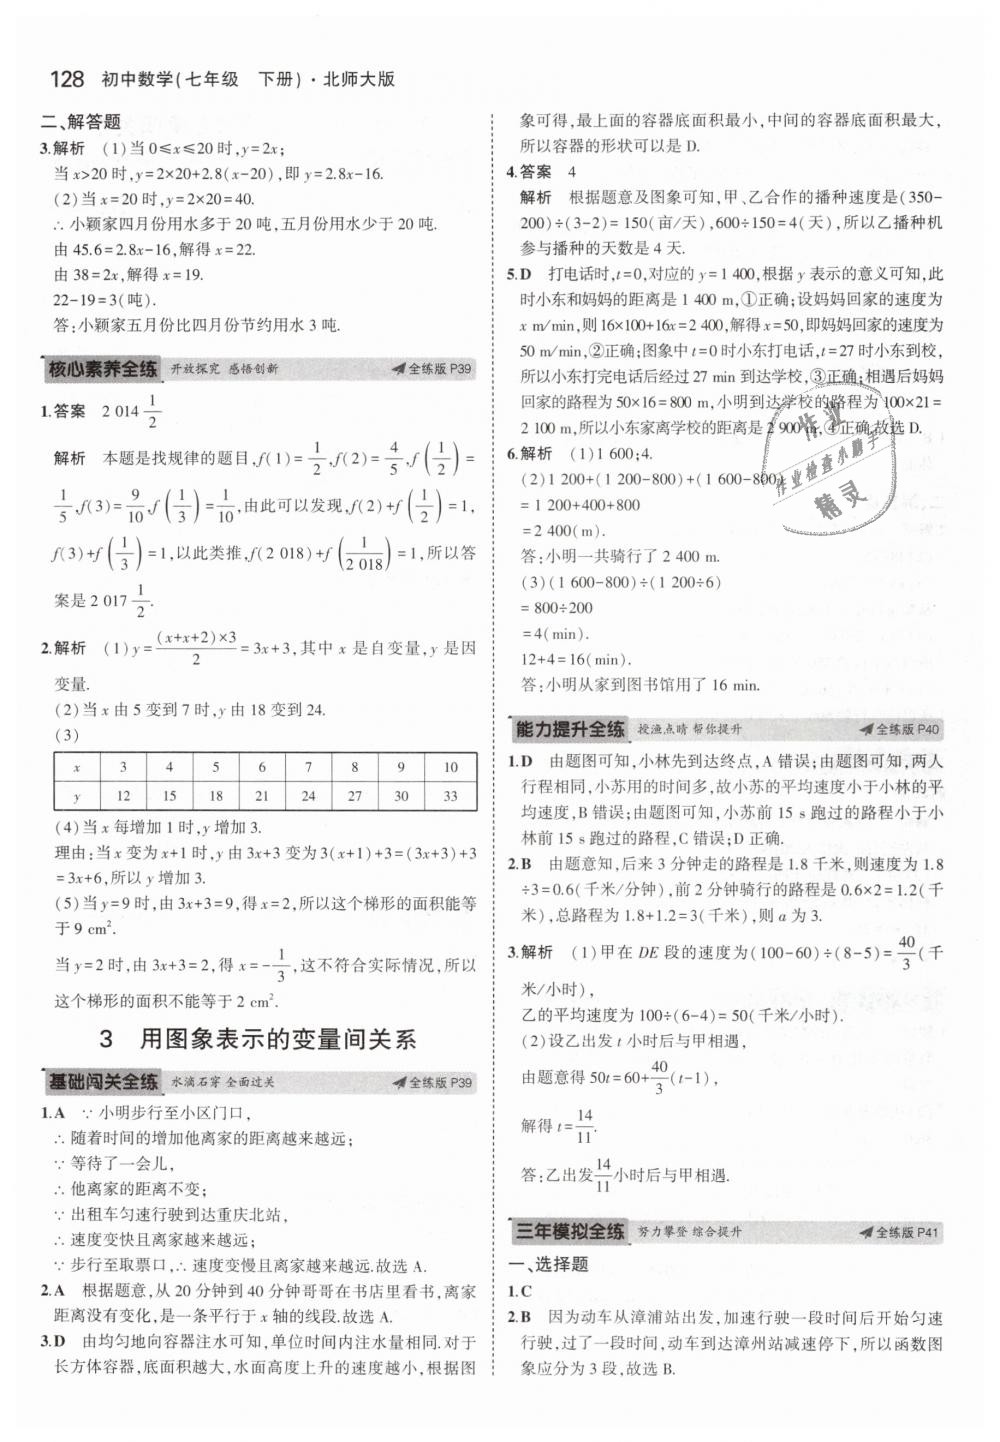 128 初中数学(七年级 下册)·北师大版
二、解答题
3.解析 (1)当0≤x≤20时,y=2x;
当x>20时,y=2×20+2.8(x-20),即y=2.8x-16.
(2)当x=20时,y=2×20=40.
∴小颖家四月份用水多于20吨,五月份用水少于20吨.
由45.6=2.8x-16,解得x=22.
由38=2x,解得x=19.
22-19=3(吨).
答:小颖家五月份比四月份节约用水3吨.
核心素养全练 开放探究 感悟创新 全练版P39
1.答案 2 014 1/2
解析 本题是找规律的题目,f(1)=1/2,f(2)=4/5,f(1/2)=
1/5,f(3)=9/10,f(1/3)=1/10,由此可以发现,f(2)+f(1/2)=1,
f(3)+f(1/3)=1,以此类推,f(2 018)+f(1/2 018)=1,所以答
案是2 017 1/2.
2.解析 (1)y=(x+x+2)×3/2=3x+3,其中x是自变量,y是因
变量.
(2)当x由5变到7时,y由18变到24.
(3)
x 3 4 5 6 7 8 9 10
y 12 15 18 21 24 27 30 33
(4)当x每增加1时,y增加3.
理由:当x变为x+1时,y由3x+3变为3(x+1)+3=(3x+3)+3
=3x+6,所以y增加3.
(5)当y=9时,由3x+3=9,得x=2,所以这个梯形的面积能等
于9 cm².
当y=2时,由3x+3=2,得x=-1/3,这不符合实际情况,所以
这个梯形的面积不能等于2 cm².
3 用图象表示的变量间关系
基础闯关全练 水滴石穿 全面过关 全练版P39
1.A ∵小明步行至小区门口,
∴随着时间的增加他离家的距离越来越远;
∵等待了一会儿,
∴他离家的距离不变;
∵出租车匀速行驶到达重庆北站,
∴速度变快且离家越来越远;
∵步行至取票口,∴速度变慢且离家越来越远.故选A.
2.A 根据题意,从20分钟到40分钟哥哥在书店里看书,离家
距离没有变化,是一条平行于x轴的线段.故选A.
3.D 由均匀地向容器注水可知,单位时间内注水量相同.对于
长方体容器,底面积越大,水面高度上升的速度越小,根据图
象可得,最上面的容器底面积最小,中间的容器底面积最大,
所以容器的形状可以是D.
4.答案 4
解析 根据题意及图象可知,甲、乙合作的播种速度是(350-
200)÷(3-2)=150(亩/天),600÷150=4(天),所以乙播种机
参与播种的天数是4天.
5.D 打电话时,t=0,对应的y=1 400,根据y表示的意义可知,此
时小东和妈妈的距离是1 400 m,①正确;设妈妈回家的速度为
x m/min,则16×100+16x=2 400,解得x=50,即妈妈回家的速度为
50 m/min,②正确;图象中t=0时小东打电话,t=27时小东到校,
所以小东打完电话后经过27 min到达学校,③正确;相遇后妈妈
回家的路程为50×16=800 m,小明到达学校的路程为100×21=
2 100 m,所以小东家离学校的距离是2 900 m,④正确.故选D.
6.解析 (1)1 600;4.
(2)1 200+(1 200-800)+(1 600-800)
=1 200+400+800
=2 400(m).
答:小明一共骑行了2 400 m.
(3)(1 600-800)÷(1 200÷6)
=800÷200
=4(min).
12+4=16(min).
答:小明从家到图书馆用了16 min.
能力提升全练 授渔点睛 帮你提升 全练版P40
1.D 由题图可知,小林先到达终点,A错误;由题图可知,两人
行程相同,小苏用的时间多,故小苏的平均速度小于小林的平
均速度,B错误;由题图可知,小苏前15 s跑过的路程小于小
林前15 s跑过的路程,C错误;D正确.
2.B 由题意知,后来3分钟走的路程是1.8千米,则速度为1.8
÷3=0.6(千米/分钟),前2分钟骑行的路程是0.6×2=1.2(千
米),总路程为1.8+1.2=3(千米),则a为3.
3.解析 (1)甲在DE段的速度为(100-60)÷(8-5)=40/3(千
米/小时),
乙的平均速度为100÷(6-4)=50(千米/小时).
(2)设乙出发t小时后与甲相遇,
由题意得50t=60+40/3(t-1),
解得t=14/11.
答:乙出发14/11小时后与甲相遇.
三年模拟全练 努力攀登 综合提升 全练版P41
一、选择题
1.C
2.B 因为动车从漳浦站出发,加速行驶一段时间后开始匀速
行驶,过了一段时间,动车到达漳州站减速停下,所以函数图
象应分为3段,故选B.
作业
作业检查小助手
精灵